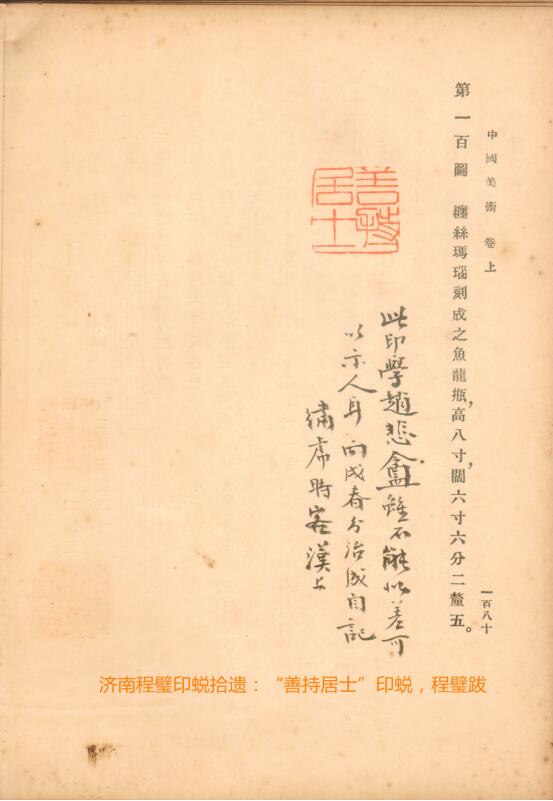 中國美術 卷上 一百八十
第一百圖 纏絲瑪瑙刻成之魚龍瓶,高八寸,闊六寸六分二釐五。
善持
居士
此印學趙悲盦雖不能似差可
以示人耳 丙戌春分治成自記
繡 時客漢上
济南程璧印蜕拾遗：“善持居士”印蜕，程璧跋